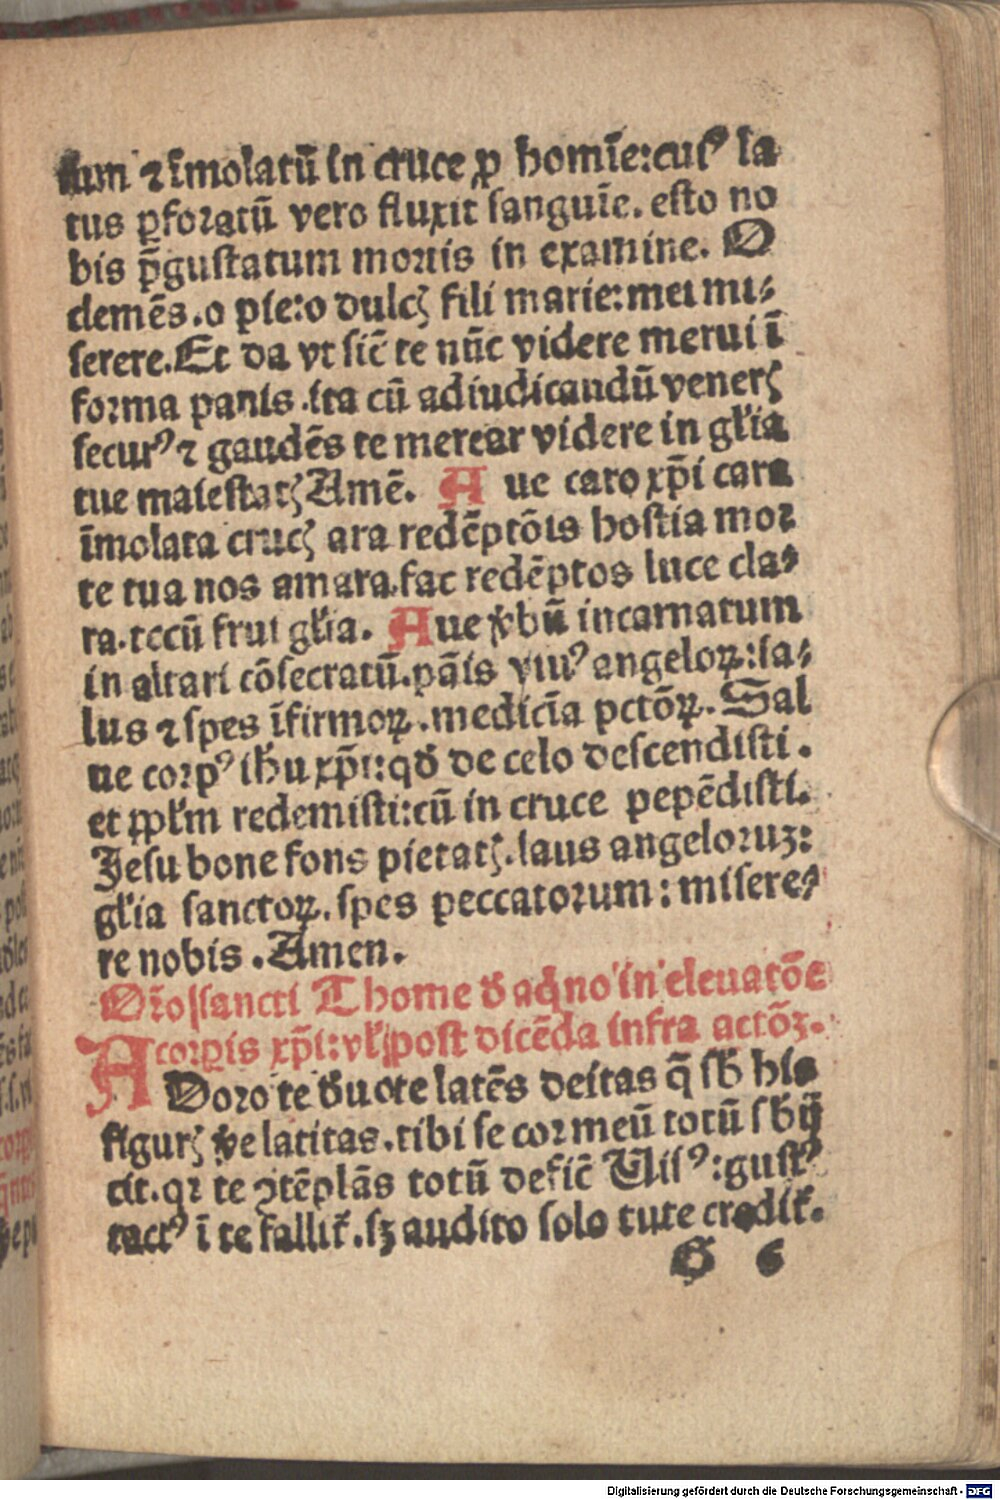 sum ⁊ īmolatū in cruce ꝓ homīe: cuiꝰ la
tus ꝑforatū vero fluxit sanguīe. esto no
bis p̄gustatum mortis in examine. O
clemēs. o pie: o dulcꝭ fili marie: mei mi⸗
serere. Et da vt sic̄ te nūc videre merui ī
forma panis. ita cū ad iudicandū venerꝭ
securꝰ ⁊ gaudēs te merear videre in gl̄ia
tue maiestatꝭ Amē. Aue caro xp̄i cara
īmolata crucꝭ ara redēptōis hostia mor
te tua nos amara. fac redēptos luce cla⸗
ra. tecū frui gl̄ia. Aue v̄bū incarnatum
in altari cōsecratū. pāis viuꝰ angeloꝝ: sa⸗
lus ⁊ spes īfirmoꝝ. medicīa pctōꝝ. Sal
ue corpꝰ ih̄u xp̄i: qđ de celo descendisti.
et ppl̄m redemisti: cū in cruce pepēdisti.
Jesu bone fons pietatꝭ. laus angeloruꝫ:
gl̄ia sanctoꝝ. spes peccatorum: misere⸗
re nobis. Amen.
Or̄o sancti Thome đ aq̄no in eleuatōe
corꝑis xp̄i: vl̄ post dicēda infra actōꝫ.
Adoro te đuote latēs deitas q̄ sƀ his
figurꝭ v̄e latitas. tibi se cor meū totū sƀij
cit. qꝛ te ꝯtēplās totū defic̄ Uisꝰ: gustꝰ
tactꝰ ī te fallit̄. sꝫ audito solo tute credit̄.
G 6
Digitalisierung gefördert durch die Deutsche Forschungsgemeinschaft - DFG